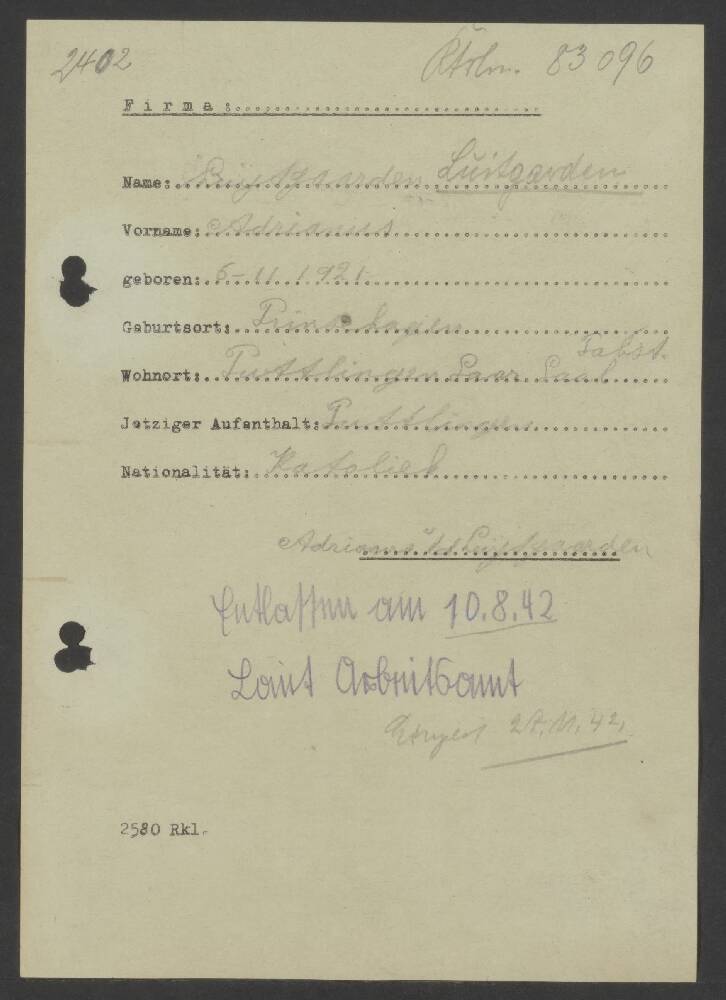 2402 83 096
Firma:
Name: Luitgarden
Vorname: Adrianus
geboren: 6-11.1921
Geburtsort: Prinsehagen
Wohnort: Puttlingen Saar
Jetziger Aufenthalt: Puttlingen
Nationalität: Katoliek
Adrianus
Entlassen am 10.8.42
Laut Arbeitsamt
27.11.42.
2580 Rkl.